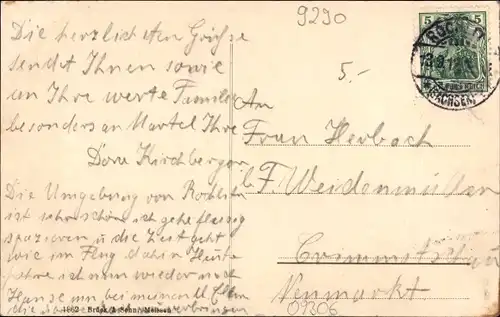 9290
5.-
5 5
ROCHLITZ
(SACHSEN)
Die herzlichsten Grüße
sendet Ihnen sowie
an Ihre werte Familie
besonders an Martel Ihre
Dora Kirchberger
Die Umgebung von Rochlitz
ist sehr schön ich gehe fleissig
spazieren u die Zeit geht
wie im Flug dahin Heute
fahre ich nun wieder nach
Hause um bei meinen l. Eltern
verbringen
An
Frau Herbach
b. F. Weidenmüller
Crimmitschau
Neumarkt
09306
1962 Brück & Sohn, Meissen